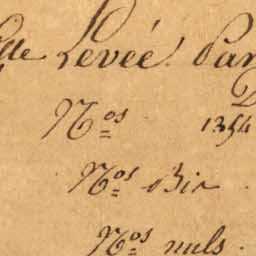 Levée Par
D
N.os 1354
N.os Bis
N.os nuls.